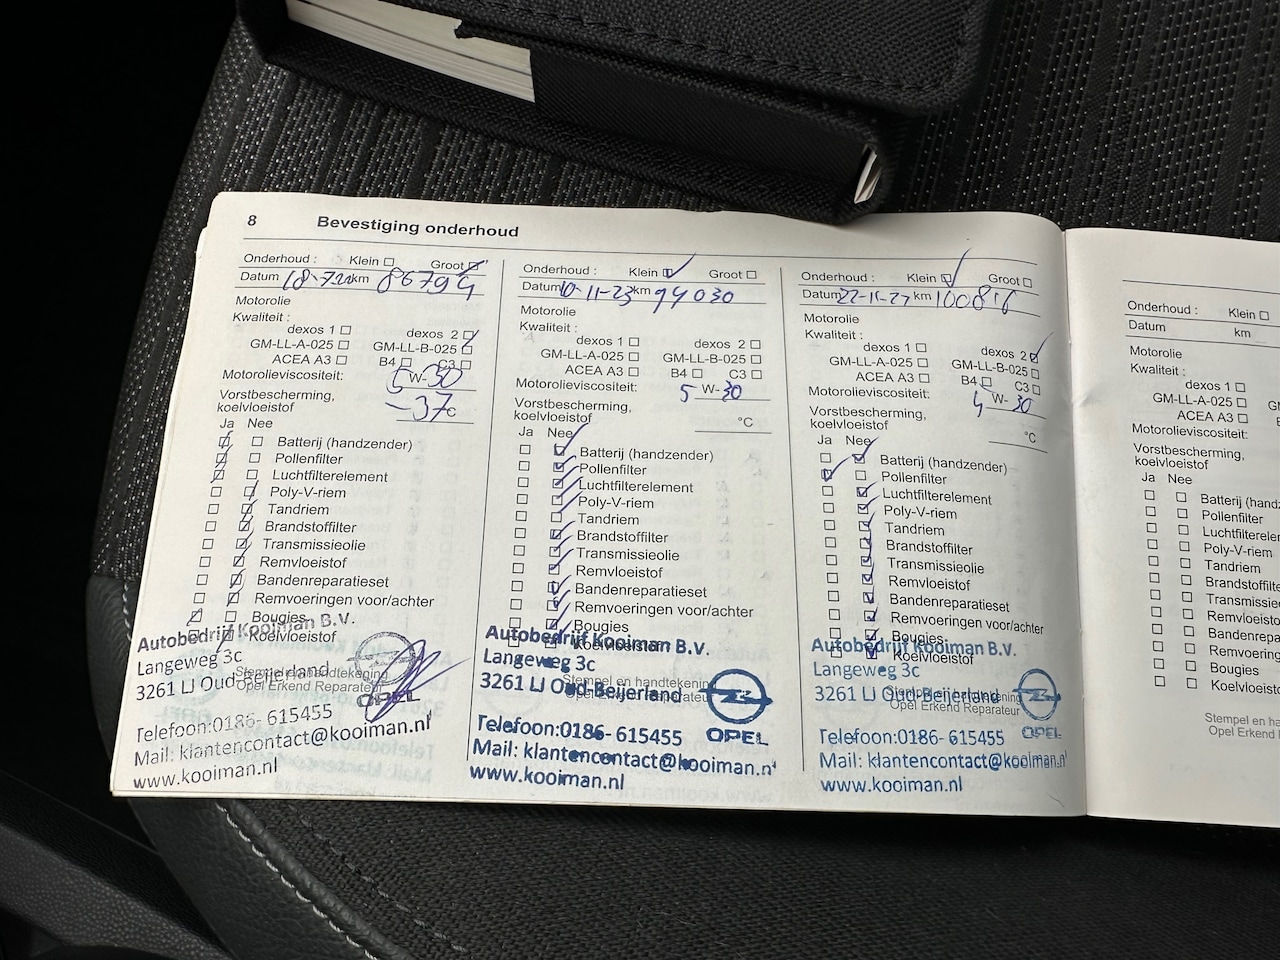 8 Bevestiging onderhoud
Onderhoud : Klein Groot
Datum km 86794
Motorolie
Kwaliteit :
dexos 1 dexos 2
GM-LL-A-025 GM-LL-B-025
ACEA A3 B4 C3
Motorolieviscositeit: 5 W-30
Vorstbescherming,
koelvloeistof -37°C
Ja Nee
Batterij (handzender)
Pollenfilter
Luchtfilterelement
Poly-V-riem
Tandriem
Brandstoffilter
Transmissieolie
Remvloeistof
Bandenreparatieset
Remvoeringen voor/achter
Bougies
Koelvloeistof
Stempel en handtekening
Opel Erkend Reparateur
Autobedrijf Kooiman B.V.
Langeweg 3c
3261 LJ Oud-Beijerland
OPEL
Telefoon:0186-615455
Mail: klantencontact@kooiman.nl
www.kooiman.nl
Onderhoud : Klein Groot
Datum 10-11-23 km 94030
Motorolie
Kwaliteit :
dexos 1 dexos 2
GM-LL-A-025 GM-LL-B-025
ACEA A3 B4 C3
Motorolieviscositeit: 5 W-30
Vorstbescherming,
koelvloeistof °C
Ja Nee
Batterij (handzender)
Pollenfilter
Luchtfilterelement
Poly-V-riem
Tandriem
Brandstoffilter
Transmissieolie
Remvloeistof
Bandenreparatieset
Remvoeringen voor/achter
Bougies
Koelvloeistof
Stempel en handtekening
Opel Erkend Reparateur
Autobedrijf Kooiman B.V.
Langeweg 3c
3261 LJ Oud-Beijerland
OPEL
Telefoon:0186-615455
Mail: klantencontact@kooiman.nl
www.kooiman.nl
Onderhoud : Klein Groot
Datum km 100816
Motorolie
Kwaliteit :
dexos 1 dexos 2
GM-LL-A-025 GM-LL-B-025
ACEA A3 B4 C3
Motorolieviscositeit: W-30
Vorstbescherming,
koelvloeistof °C
Ja Nee
Batterij (handzender)
Pollenfilter
Luchtfilterelement
Poly-V-riem
Tandriem
Brandstoffilter
Transmissieolie
Remvloeistof
Bandenreparatieset
Remvoeringen voor/achter
Bougies
Koelvloeistof
Stempel en handtekening
Opel Erkend Reparateur
Autobedrijf Kooiman B.V.
Langeweg 3c
3261 LJ Oud-Beijerland
OPEL
Telefoon:0186-615455
Mail: klantencontact@kooiman.nl
www.kooiman.nl
Onderhoud : Klein
Datum km
Motorolie
Kwaliteit :
dexos 1
GM-LL-A-025 G
ACEA A3
Motorolieviscositeit:
Vorstbescherming,
koelvloeistof
Ja Nee
Batterij (handz
Pollenfilter
Luchtfilterele
Poly-V-riem
Tandriem
Brandstoffilte
Transmissie
Remvloeisto
Bandenrepa
Remvoering
Bougies
Koelvloeist
Stempel en ha
Opel Erkend